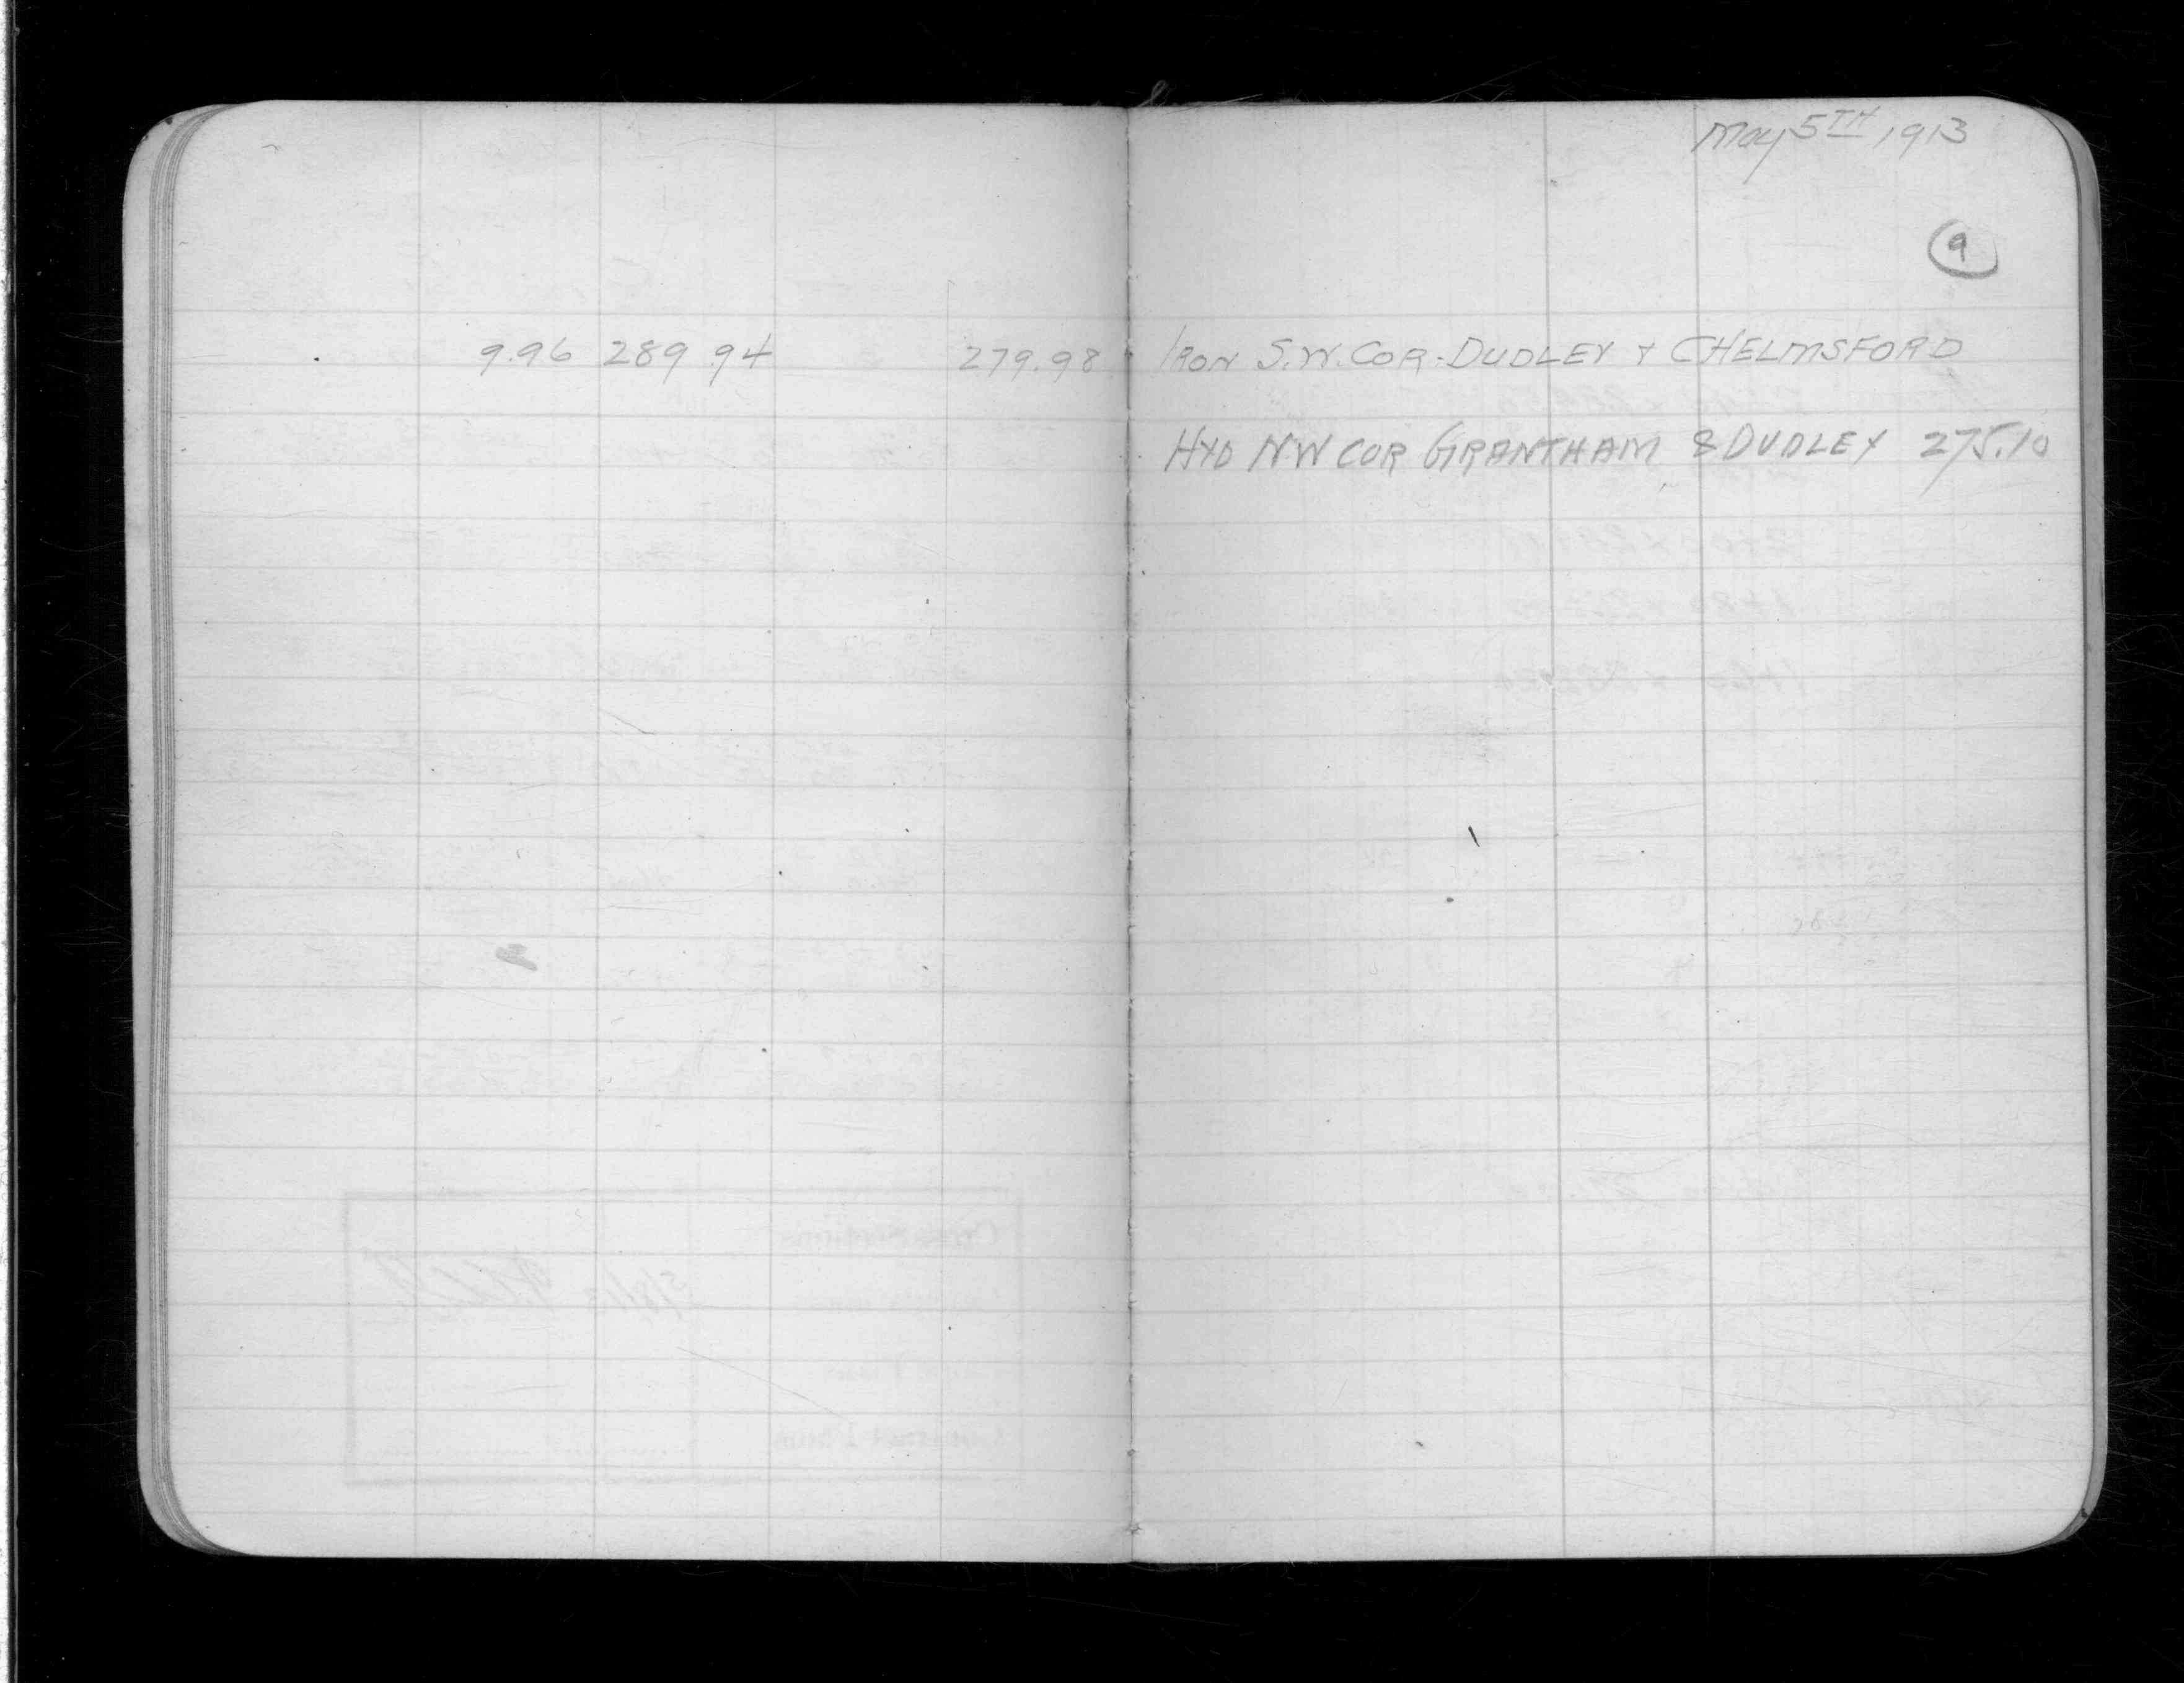 May 5TH 1913
9
9.96 289.94 279.98 IRON S.W. COR. DUDLEY & CHELMSFORD
HYD NW COR GRANTHAM & DUDLEY 275.10